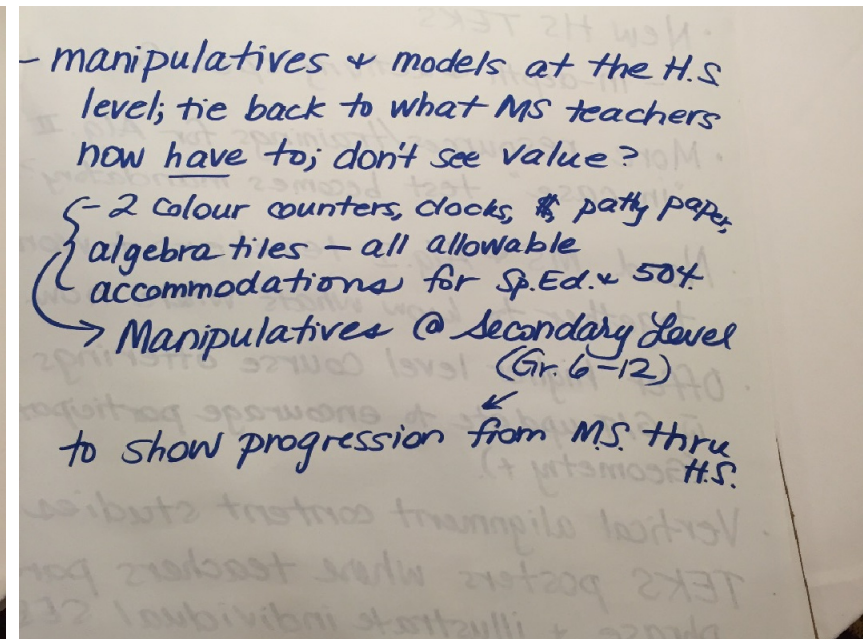 - manipulatives & models at the H.S
level; tie back to what MS teachers
now have to; don't see value?
- 2 colour counters, clocks, patty paper,
algebra tiles - all allowable
accommodations for Sp.Ed. & 504.
→ Manipulatives @ Secondary Level
(Gr. 6-12)
to show progression from M.S. thru
H.S.